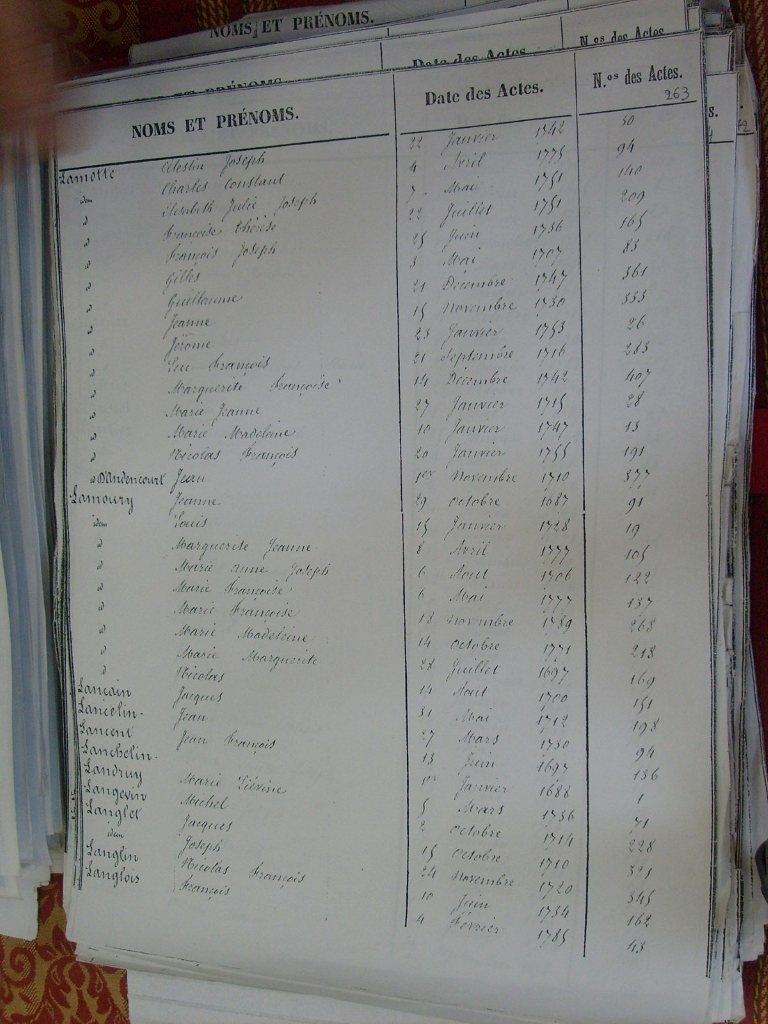 NOMS ET PRÉNOMS.
Date des Actes. N.os des Actes.
NOMS ET PRÉNOMS. Date des Actes. N.os des Actes.
263
Lamotte Célestin Joseph 22 Janvier 1742 30
idem Charles Constant 4 Avril 1775 94
d Elisabeth Julie Joseph 7 Mai 1751 140
d Françoise Thérèse 22 Juillet 1751 209
d François Joseph 25 Juin 1736 165
d Gilles 3 Mai 1707 83
d Guillaume 21 Décembre 1747 361
d Jeanne 15 Novembre 1730 333
d Jérôme 23 Janvier 1753 26
d Leu François 21 Septembre 1716 283
d Marguerite Françoise 14 Décembre 1742 407
d Marie Jeanne 27 Janvier 1715 28
d Marie Madeleine 10 Janvier 1747 13
d Nicolas François 20 Janvier 1755 191
d D'Andencourt Jean 1er Novembre 1710 377
Lamoury Jeanne 29 Octobre 1687 91
idem Louis 15 Janvier 1728 19
d Marguerite Jeanne 8 Avril 1777 105
d Marie Anne Joseph 6 Aout 1706 122
d Marie Françoise 6 Mai 1777 137
d Marie Françoise 18 Novembre 1789 268
d Marie Madeleine 14 Octobre 1771 218
d Marie Marguerite 28 Juillet 1697 169
d Nicolas 14 Aout 1700 151
Lancain Jacques 31 Mai 1712 198
Lancelin- Jean 27 Mars 1730 94
Lancent Jean François 13 Juin 1697 136
Lanchelin- 1er Janvier 1688 1
Landruy Marie Liévine 5 Mars 1736 71
Langevin Michel 2 Octobre 1714 228
Langlet Jacques 15 Octobre 1710 321
idem Joseph 24 Novembre 1720 345
Langlin Nicolas François 10 Juin 1734 162
Langlois François 4 Février 1785 43